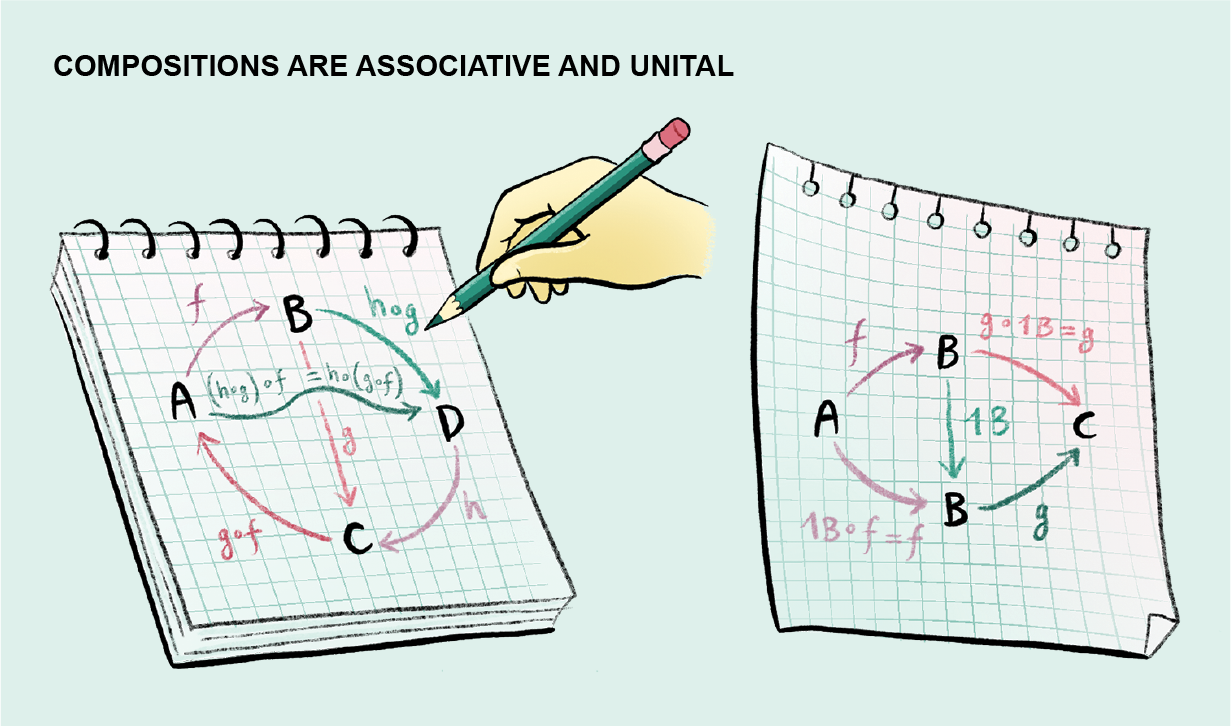 COMPOSITIONS ARE ASSOCIATIVE AND UNITAL
f
B
h∘g
A
(h∘g)∘f = h∘(g∘f)
D
g
h
g∘f
C
f
B
g∘1B=g
A
1B
C
B
g
1B∘f=f